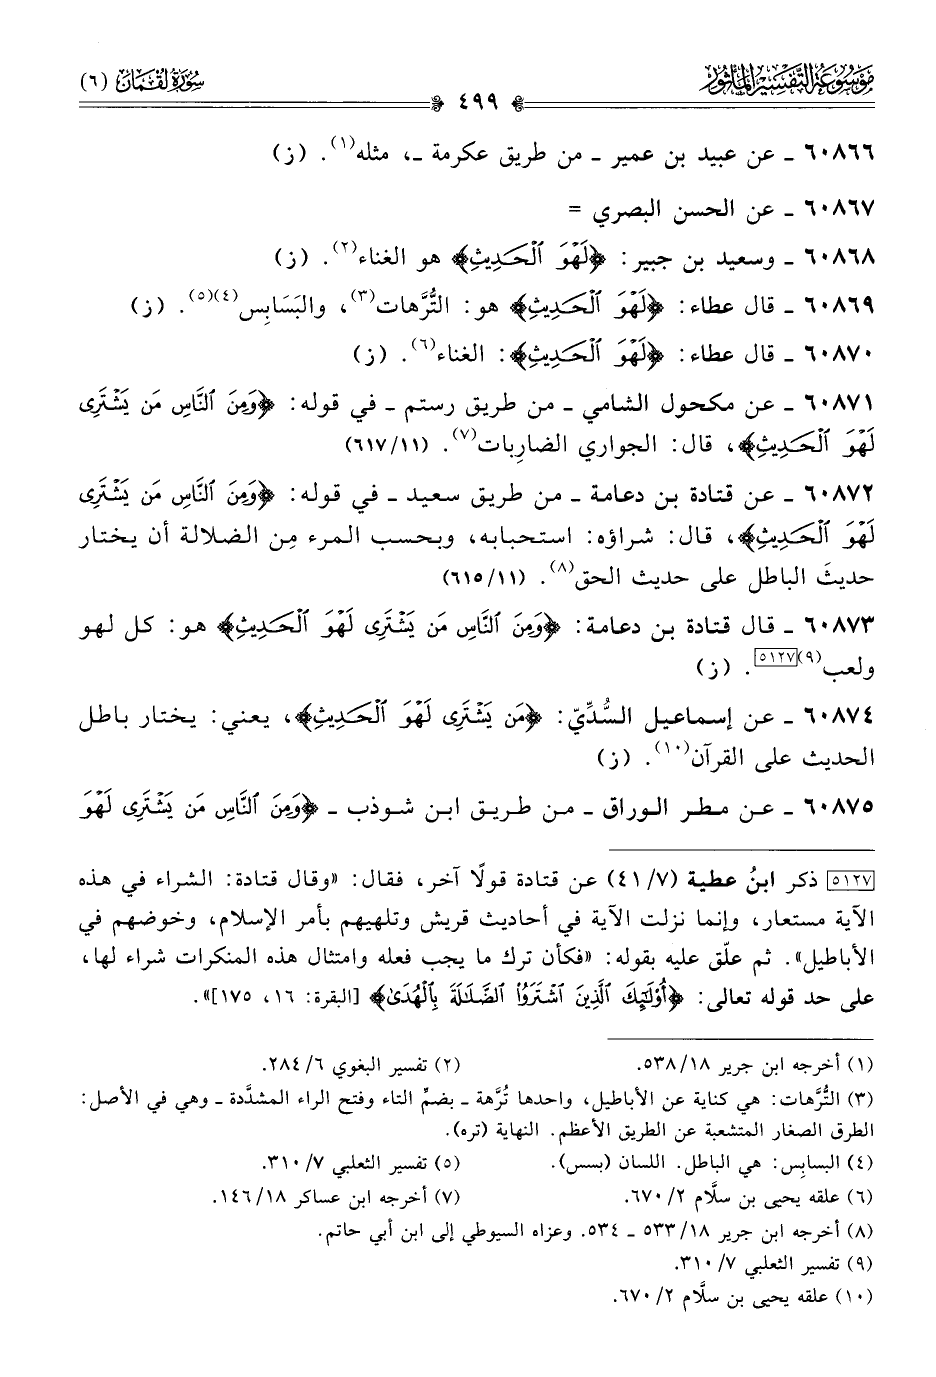 موسوعة التفسير المأثور
سورة لقمان (٦)
٤٩٩
٦٠٨٦٦ ـ عن عبيد بن عمير ـ من طريق عكرمة ـ، مثله(١). (ز)
٦٠٨٦٧ ـ عن الحسن البصري =
٦٠٨٦٨ ـ وسعيد بن جبير: ﴿لَهْوَ ٱلْحَدِيثِ﴾ هو الغناء(٢). (ز)
٦٠٨٦٩ ـ قال عطاء: ﴿لَهْوَ ٱلْحَدِيثِ﴾ هو: التُّرَّهات(٣)، والبَسَابِس(٤)(٥). (ز)
٦٠٨٧٠ ـ قال عطاء: ﴿لَهْوَ ٱلْحَدِيثِ﴾: الغناء(٦). (ز)
٦٠٨٧١ ـ عن مكحول الشامي ـ من طريق رستم ـ في قوله: ﴿وَمِنَ ٱلنَّاسِ مَن يَشْتَرِى
لَهْوَ ٱلْحَدِيثِ﴾، قال: الجواري الضارِبات(٧). (٦١٧/١١)
٦٠٨٧٢ ـ عن قتادة بن دعامة ـ من طريق سعيد ـ في قوله: ﴿وَمِنَ ٱلنَّاسِ مَن يَشْتَرِى
لَهْوَ ٱلْحَدِيثِ﴾، قال: شراؤه: استحبابه، وبحسب المرء مِن الضلالة أن يختار
حديثَ الباطل على حديث الحق(٨). (٦١٥/١١)
٦٠٨٧٣ ـ قال قتادة بن دعامة: ﴿وَمِنَ ٱلنَّاسِ مَن يَشْتَرِى لَهْوَ ٱلْحَدِيثِ﴾ هو: كل لهو
ولعب(٩)[٥١٢٧]. (ز)
٦٠٨٧٤ ـ عن إسماعيل السُّدِّيّ: ﴿مَن يَشْتَرِى لَهْوَ ٱلْحَدِيثِ﴾، يعني: يختار باطل
الحديث على القرآن(١٠). (ز)
٦٠٨٧٥ ـ عن مطر الوراق ـ من طريق ابن شوذب ـ ﴿وَمِنَ ٱلنَّاسِ مَن يَشْتَرِى لَهْوَ
[٥١٢٧] ذكر ابنُ عطية (٤١/٧) عن قتادة قولًا آخر، فقال: «وقال قتادة: الشراء في هذه
الآية مستعار، وإنما نزلت الآية في أحاديث قريش وتلهيهم بأمر الإسلام، وخوضهم في
الأباطيل». ثم علّق عليه بقوله: «فكأن ترك ما يجب فعله وامتثال هذه المنكرات شراء لها،
على حد قوله تعالى: ﴿أُوْلَٰٓئِكَ ٱلَّذِينَ ٱشْتَرَوُاْ ٱلضَّلَٰلَةَ بِٱلْهُدَىٰ﴾ [البقرة: ١٦، ١٧٥]».
(١) أخرجه ابن جرير ٥٣٨/١٨.
(٢) تفسير البغوي ٢٨٤/٦.
(٣) التُّرَّهات: هي كناية عن الأباطيل، واحدها تُرَّهة ـ بضمِّ التاء وفتح الراء المشدَّدة ـ وهي في الأصل:
الطرق الصغار المتشعبة عن الطريق الأعظم. النهاية (تره).
(٤) البسابِس: هي الباطل. اللسان (بسس).
(٥) تفسير الثعلبي ٣١٠/٧.
(٦) علقه يحيى بن سلَّام ٦٧٠/٢.
(٧) أخرجه ابن عساكر ١٤٦/١٨.
(٨) أخرجه ابن جرير ٥٣٣/١٨ ـ ٥٣٤. وعزاه السيوطي إلى ابن أبي حاتم.
(٩) تفسير الثعلبي ٣١٠/٧.
(١٠) علقه يحيى بن سلَّام ٦٧٠/٢.